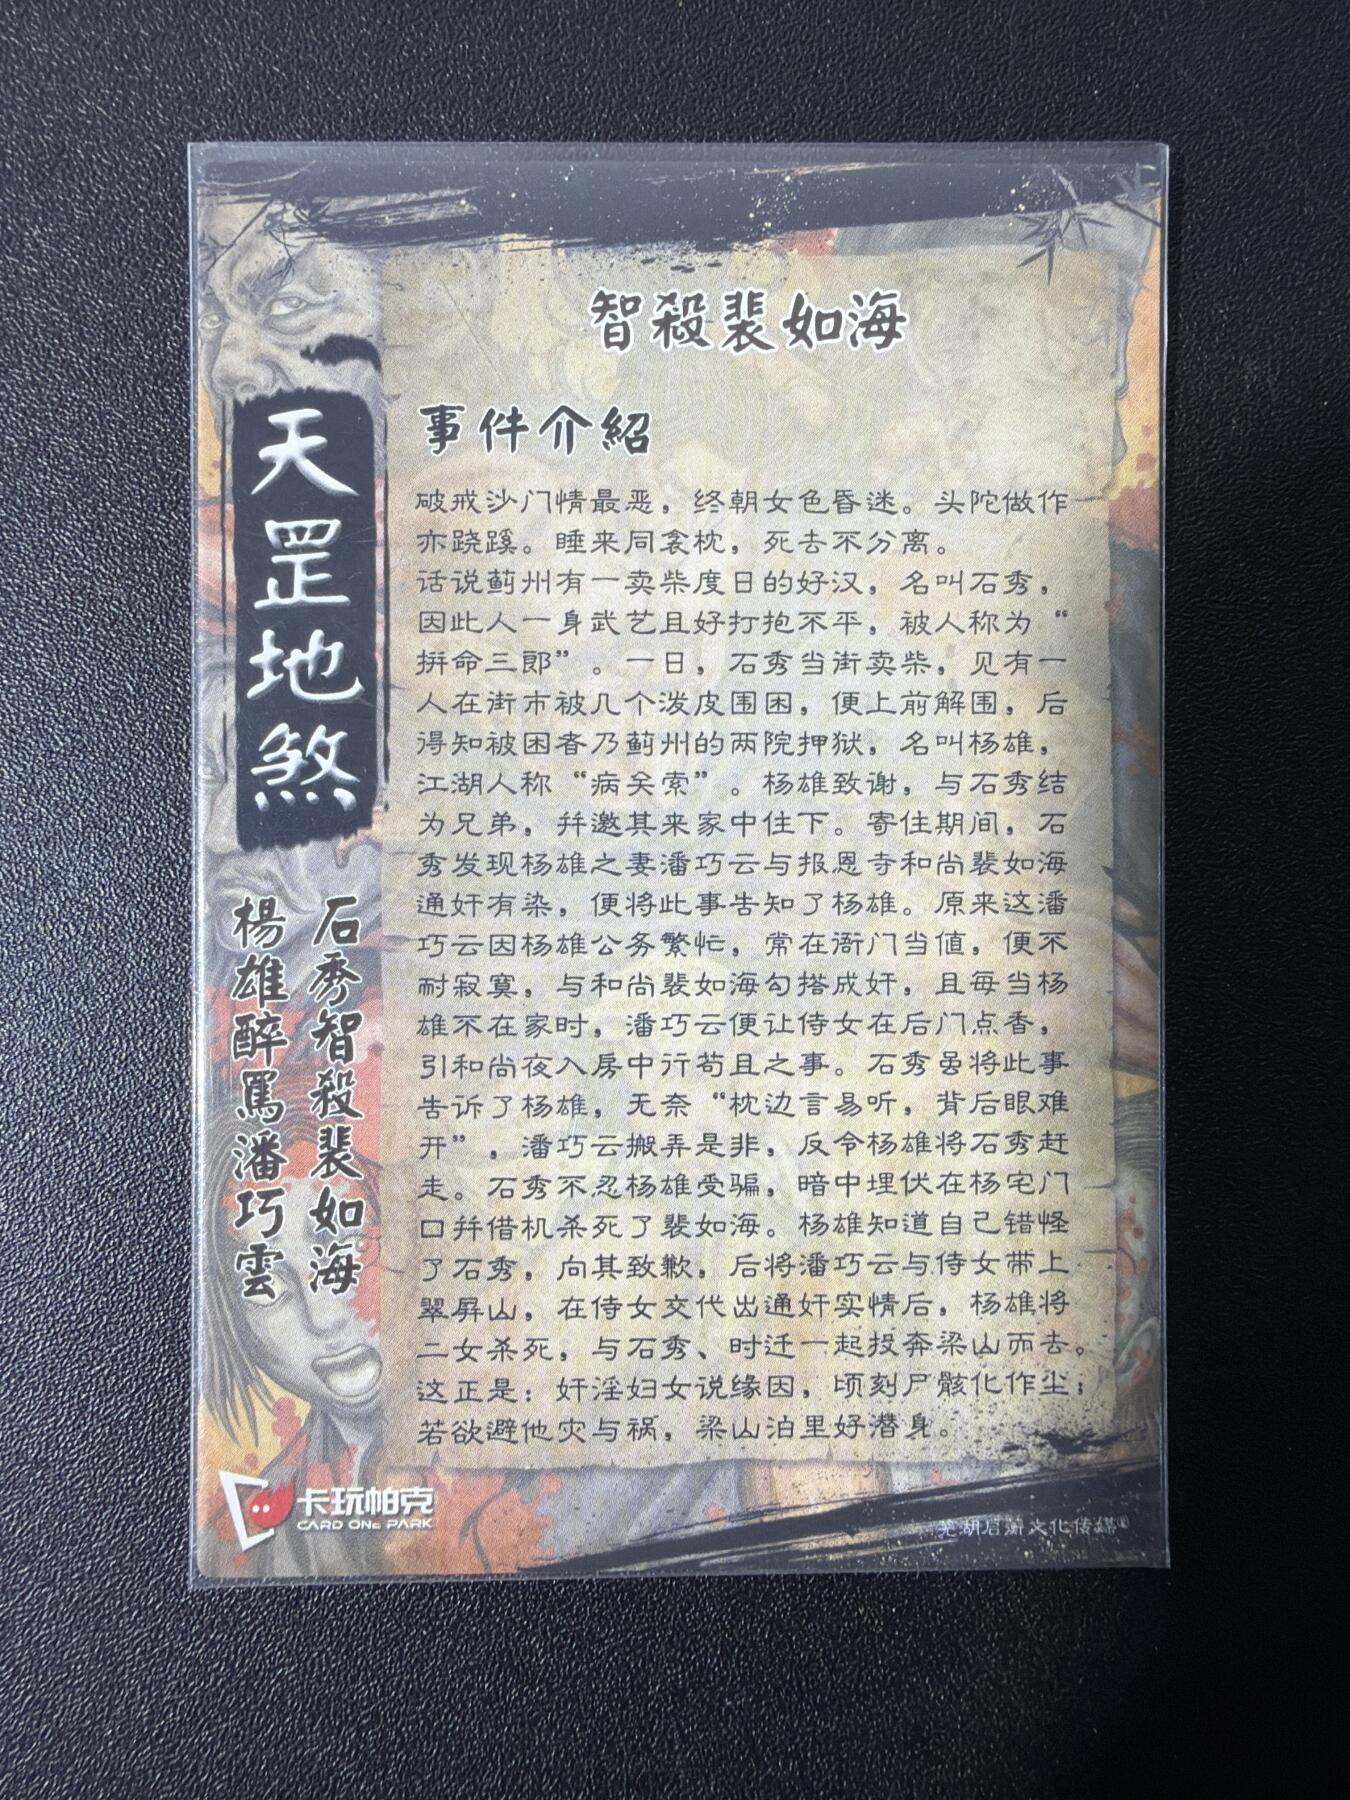 智殺裴如海
事件介紹
破戒沙门情最恶，终朝女色昏迷。头陀做作
亦跷蹊。睡来同衾枕，死去不分离。
话说蓟州有一卖柴度日的好汉，名叫石秀，
因此人一身武艺且好打抱不平，被人称为“
拼命三郎”。一日，石秀当街卖柴，见有一
人在街市被几个泼皮围困，便上前解围，后
得知被困者乃蓟州的两院押狱，名叫杨雄，
江湖人称“病关索”。杨雄致谢，与石秀结
为兄弟，并邀其来家中住下。寄住期间，石
秀发现杨雄之妻潘巧云与报恩寺和尚裴如海
通奸有染，便将此事告知了杨雄。原来这潘
巧云因杨雄公务繁忙，常在衙门当值，便不
耐寂寞，与和尚裴如海勾搭成奸，且每当杨
雄不在家时，潘巧云便让侍女在后门点香，
引和尚夜入房中行苟且之事。石秀虽将此事
告诉了杨雄，无奈“枕边言易听，背后眼难
开”，潘巧云搬弄是非，反令杨雄将石秀赶
走。石秀不忍杨雄受骗，暗中埋伏在杨宅门
口并借机杀死了裴如海。杨雄知道自己错怪
了石秀，向其致歉，后将潘巧云与侍女带上
翠屏山，在侍女交代出通奸实情后，杨雄将
二女杀死，与石秀、时迁一起投奔梁山而去。
这正是：奸淫妇女说缘因，顷刻尸骸化作尘；
若欲避他灾与祸，梁山泊里好潜身。
天罡地煞
石秀智殺裴如海
楊雄醉罵潘巧雲
卡玩帕克
CARD ONE PARK
芜湖启萧文化传媒